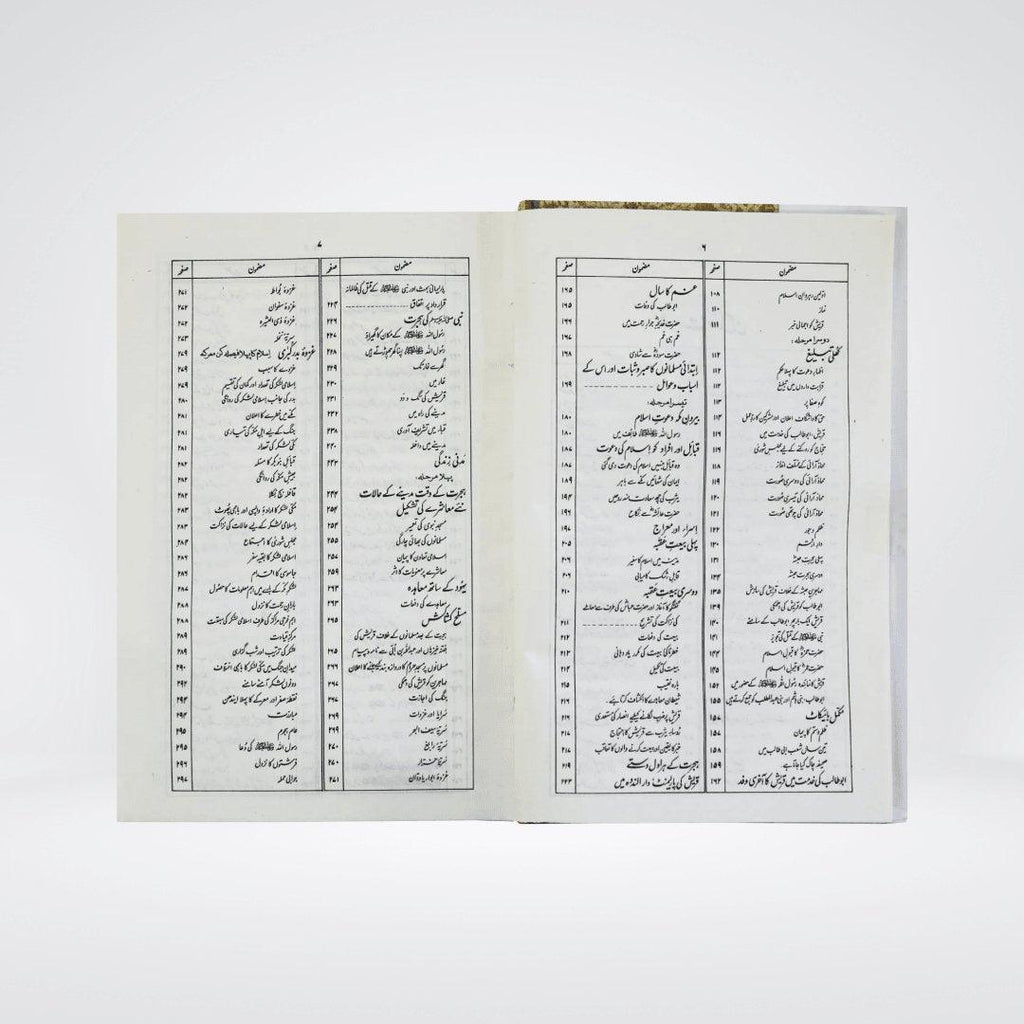 ۶
مضمون صفحہ
اوّلین رہروانِ اسلام ۱۰۸
نماز ۱۱۰
قریش کو اجمالی خبر ۱۱۱
دوسرا مرحلہ:
کھلی تبلیغ ۱۱۲
اظہارِ دعوت کا پہلا حکم ۱۱۲
قرابت داروں میں تبلیغ ۱۱۲
کوہِ صفا پر ۱۱۳
حق کا واشگاف اعلان اور مشرکین کا ردِّعمل ۱۱۴
قریش، ابوطالب کی خدمت میں ۱۱۶
حجاج کو روکنے کے لیے مجلسِ شوریٰ ۱۱۶
محاذ آرائی کے مختلف انداز ۱۱۸
محاذ آرائی کی دوسری صورت ۱۱۹
محاذ آرائی کی تیسری صورت ۱۲۰
محاذ آرائی کی چوتھی صورت ۱۲۱
ظلم و جور ۱۲۲
دارِ ارقم ۱۳۰
پہلی ہجرتِ حبشہ ۱۳۱
دوسری ہجرتِ حبشہ ۱۳۴
مہاجرینِ حبشہ کے خلاف قریش کی سازش ۱۳۵
ابوطالب کو قریش کی دھمکی ۱۳۹
قریش ایک بار پھر ابوطالب کے سامنے ۱۴۰
نبی ﷺ کے قتل کی تجویز ۱۴۱
حضرت حمزہؓ کا قبولِ اسلام ۱۴۴
حضرت عمرؓ کا قبولِ اسلام ۱۴۵
قریش کا نمائندہ رسول اللہ ﷺ کے حضور میں ۱۵۲
ابوطالب، بنی ہاشم اور بنی عبدالمطلب کو جمع کرتے ہیں ۱۵۵
مکمل بائیکاٹ ۱۵۷
ظلم و ستم کا پیمان ۱۵۷
تین سال شعب ابی طالب میں ۱۵۸
صحیفہ چاک کیا جاتا ہے ۱۵۹
ابوطالب کی خدمت میں قریش کا آخری وفد ۱۶۲
مضمون صفحہ
غم کا سال ۱۶۵
ابوطالب کی وفات ۱۶۵
حضرت خدیجہؓ جوارِ رحمت میں ۱۶۶
غم ہی غم ۱۶۷
حضرت سودہؓ سے شادی ۱۶۸
ابتدائی مسلمانوں کا صبر و ثبات اور اس کے
اسباب و عوامل ۱۶۹
تیسرا مرحلہ:
بیرونِ مکہ دعوتِ اسلام ۱۸۰
رسول اللہ ﷺ طائف میں ۱۸۰
قبائل اور افراد کو اسلام کی دعوت ۱۸۷
وہ قبائل جنہیں اسلام کی دعوت دی گئی ۱۸۷
ایمان کی شعاعیں مکے سے باہر ۱۸۹
یثرب کی چھ سعادت مند روحیں ۱۹۴
حضرت عائشہؓ سے نکاح ۱۹۶
اسراء اور معراج ۱۹۷
پہلی بیعتِ عقبہ ۲۰۵
مدینہ میں اسلام کا سفیر ۲۰۶
قابلِ رشک کامیابی ۲۰۶
دوسری بیعتِ عقبہ ۲۱۰
گفتگو کا آغاز اور حضرت عباسؓ کی طرف سے معاملے
کی نزاکت کی تشریح ۲۱۱
بیعت کی دفعات ۲۱۲
خطرناکیٔ بیعت کی مکرر یاددہانی ۲۱۳
بیعت کی تکمیل ۲۱۴
بارہ نقیب ۲۱۵
شیطان معاہدے کا انکشاف کرتا ہے ۲۱۶
قریش پر ضرب لگانے کیلئے انصار کی مستعدی ۲۱۶
رؤساءِ یثرب سے قریش کا احتجاج ۲۱۷
خبر کا یقین اور بیعت کرنے والوں کا تعاقب ۲۱۷
ہجرت کے ہراول دستے ۲۱۹
قریش کی پارلیمنٹ دارالندوہ میں ۲۲۳
۷
مضمون صفحہ
پارلیمانی بحث اور نبی ﷺ کے قتل کی ظالمانہ
قرارداد پر اتفاق ۲۲۴
نبی ﷺ کی ہجرت ۲۲۶
رسول اللہ ﷺ کے مکان کا گھیراؤ ۲۲۷
رسول اللہ ﷺ اپنا گھر چھوڑتے ہیں ۲۲۸
گھر سے غار تک ۲۲۹
غار میں ۲۳۰
قریش کی تگ و دَو ۲۳۱
مدینے کی راہ میں ۲۳۲
قباء میں تشریف آوری ۲۳۸
مدینے میں داخلہ ۲۴۰
مدنی زندگی ۲۴۳
پہلا مرحلہ:
ہجرت کے وقت مدینے کے حالات ۲۴۴
نئے معاشرے کی تشکیل ۲۵۴
مسجدِ نبوی کی تعمیر ۲۵۴
مسلمانوں کی بھائی چارگی ۲۵۵
اسلامی تعاون کا پیمان ۲۵۷
معاشرے پر معنویات کا اثر ۲۵۹
یہود کے ساتھ معاہدہ ۲۶۳
معاہدے کی دفعات ۲۶۳
مسلح کشاکش ۲۶۵
ہجرت کے بعد مسلمانوں کے خلاف قریش کی
فتنہ خیزیاں اور عبداللہ بن اُبی سے نامہ و پیام ۲۶۵
مسلمانوں پر مسجدِ حرام کا دروازہ بند کیے جانے کا اعلان ۲۶۶
مہاجرین کو قریش کی دھمکی ۲۶۷
جنگ کی اجازت ۲۶۷
سرایا اور غزوات ۲۶۹
سریۂ سیف البحر ۲۶۹
سریۂ رابغ ۲۷۰
سریۂ خرار ۲۷۰
غزوۂ ابواء یا ودّان ۲۷۱
مضمون صفحہ
غزوۂ بُواط ۲۷۱
غزوۂ سفوان ۲۷۲
غزوۂ ذی العشیرہ ۲۷۲
سریۂ نخلہ ۲۷۳
غزوۂ بدر کبریٰ اسلام کا پہلا فیصلہ کن معرکہ ۲۷۹
غزوے کا سبب ۲۷۹
اسلامی لشکر کی تعداد اور کمان کی تقسیم ۲۷۹
بدر کی جانب اسلامی لشکر کی روانگی ۲۸۰
مکے میں خطرے کا اعلان ۲۸۱
جنگ کے لیے اہلِ مکہ کی تیاری ۲۸۱
مکی لشکر کی تعداد ۲۸۱
قبائلِ بنوبکر کا مسئلہ ۲۸۲
جیشِ مکہ کی روانگی ۲۸۲
قافلہ بچ نکلا ۲۸۲
مکی لشکر کا ارادۂ واپسی اور باہمی پھوٹ ۲۸۳
اسلامی لشکر کے لیے حالات کی نزاکت ۲۸۳
مجلسِ شوریٰ کا اجتماع ۲۸۴
اسلامی لشکر کا بقیہ سفر ۲۸۶
جاسوسی کا اقدام ۲۸۶
لشکرِ مکہ کے بارے میں اہم معلومات کا حصول ۲۸۷
بارانِ رحمت کا نزول ۲۸۸
اہم فوجی مراکز کی طرف اسلامی لشکر کی سبقت ۲۸۸
مرکزِ قیادت ۲۸۹
لشکر کی ترتیب اور شب گزاری ۲۸۹
میدانِ جنگ میں مکی لشکر کا باہمی اختلاف ۲۹۰
دونوں لشکر آمنے سامنے ۲۹۲
نقطۂ صفر اور معرکے کا پہلا ایندھن ۲۹۳
مبارزت ۲۹۴
عام ہجوم ۲۹۵
رسول اللہ ﷺ کی دُعا ۲۹۵
فرشتوں کا نزول ۲۹۶
جوابی حملہ ۲۹۷